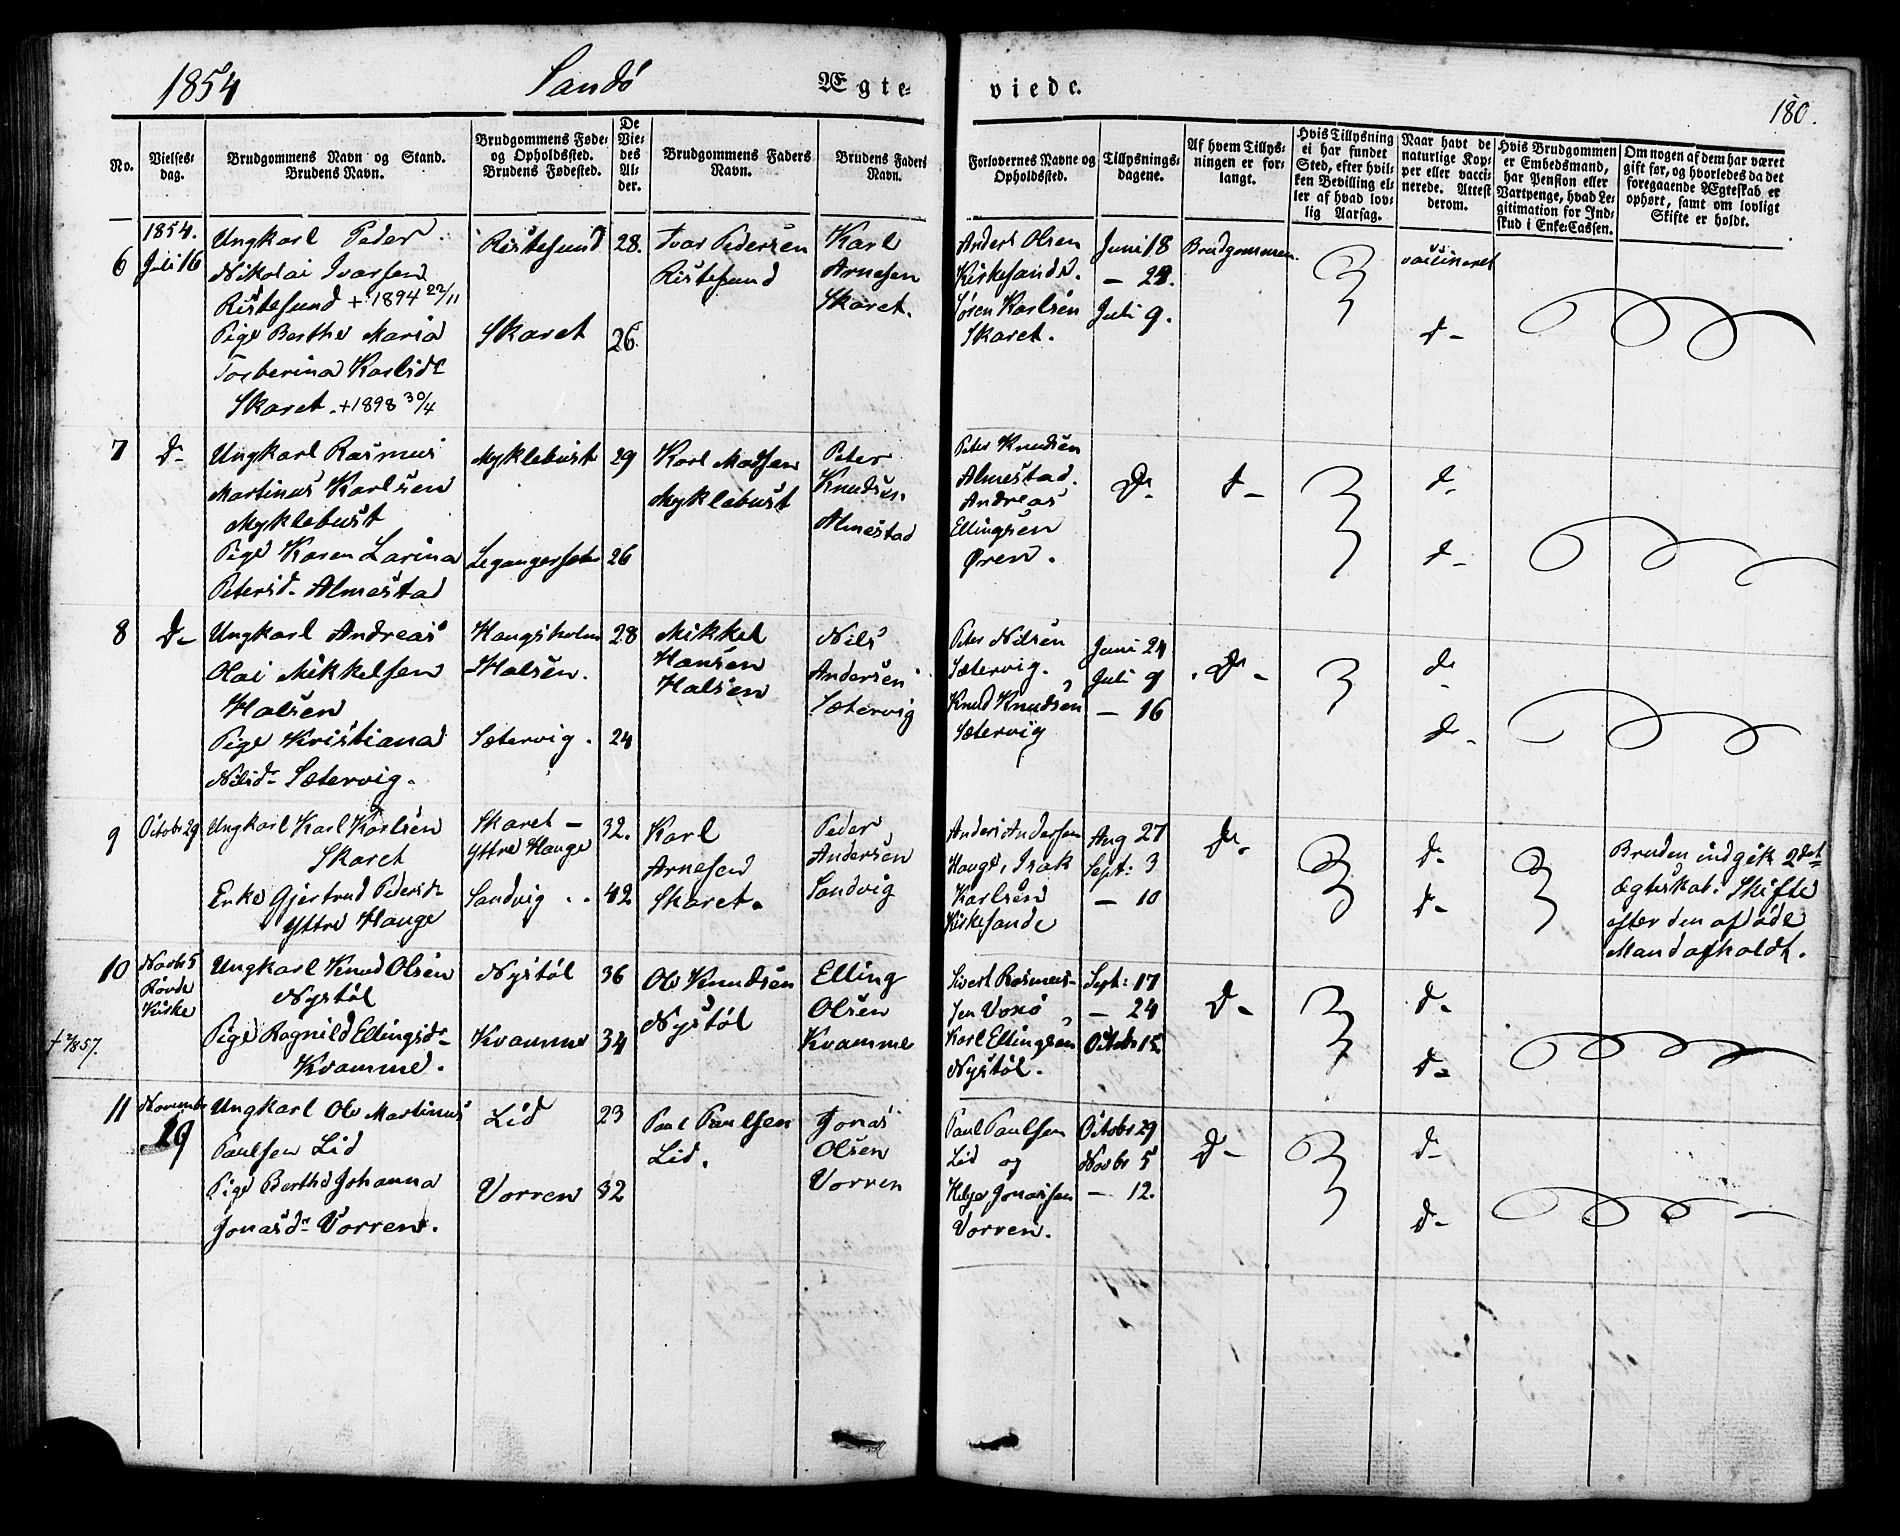 1854
Sandö
Ægte-
viede.
180.
No.
Vielses-
dag.
Brudgommens Navn og Stand.
Brudens Navn.
Brudgommens Føde-
og Opholdssted.
Brudens Fødested.
De
Vie-
des
Al-
der.
Brudgommens Faders
Navn.
Brudens Faders
Navn.
Forlovernes Navne og
Opholdssted.
Tillysnings-
dagene.
Af hvem Tillys-
ningen er for-
langt.
Hvis Tillysning
ei har fundet
Sted, efter hvil-
ken Bevilling el-
ler af hvad lov-
lig Aarsag.
Naar havt de
naturlige Kop-
per eller vacci-
nerede. Attest
derom.
Hvis Brudgommen
er Embedsmand,
har Pension eller
Vartpenge, hvad Le-
gitimation for Ind-
skud i Enke-Cassen.
Om nogen af dem har været
gift før, og hvorledes da det
foregaaende Ægteskab er
ophørt, samt om lovligt
Skifte er holdt.
6
1854.
Juli 16
Ungkarl Peder
Nikolai Ivarsen
Ristesund + 1894 22/11
Pige Berthe Maria
Torberina Karlsdr
Skaret. +1898 30/4
Ristesund
Skaret
28.
26.
Ivar Pedersen
Ristesund
Karl
Arnesen
Skaret.
Anders Olsen
Kirkesande.
Søren Karlsen
Skaret.
Juni 18
— 29.
Juli 9.
Brudgommen.
vaccineret
d-
7
D-
Ungkarl Rasmus
Martinus Karlsen
Myklebust
Pige Karen Larina
Petersd- Almestad
Myklebust
Leganger
29
26
Karl Madsen
Myklebust
Peter
Knudsen
Almestad
Peter Knudsen
Almestad.
Andreas
Ellingsen
Øren.
D-
d-
d-
d-
8
D-
Ungkarl Andreas
Olai Mikkelsen
Halsen
Pige Kristiana
Nilsd- Sætervig.
Haugsholm
Halsen.
Sætervig.
28
24
Mikkel
Hansen
Halsen
Nils
Andersen
Sætervig
Peter Nilsen
Sætervig.
Knud Knudsen
Sætervig
Juni 24
Juli 9
— 16
D-
d-
d-
9
Octobr 29
Ungkarl Karl Karlsen
Skaret
Enke Gjertrud Pedersdr
Yttre Hauge
Skaret —
Yttre Hauge
Sandvig
32.
42.
Karl
Arnesen
Skaret.
Peder
Andersen
Sandvig
Anders Andersen
Hauge, Isak
Karlsen
Kirkesande
Aug 27
Sept: 3
— 10
D-
d-
d-
Bruden indgik 2det
Ægteskab. Skifte
efter den afdöde
Mand afholdt.
10
Novbr 5
Rövde
Kirke
+ 57.
Ungkarl Knud Olsen
Nystöl
Pige Ragnild Ellingsdr-
Kvamme.
Nystöl
Kvamme
36
34
Ole Knudsen
Nystöl
Elling
Olsen
Kvamme
Sivert Rasmus-
sen Voxö,
Karl Ellingsen
Nystöl.
Sept: 17
— 24
Octobr 15.
D-
d-
d-
11
November
19
Ungkarl Ole Martinus
Paulsen Lid
Pige Berthe Johanna
Jonasdr- Vorren.
Lid
Vorren
23
32
Paul Paulsen
Lid.
Jonas
Olsen
Vorren
Paul Paulsen
Lid og
Helge Jonassen
Vorren.
Octobr 29
Novbr 5
— 12.
D-
d-
d-